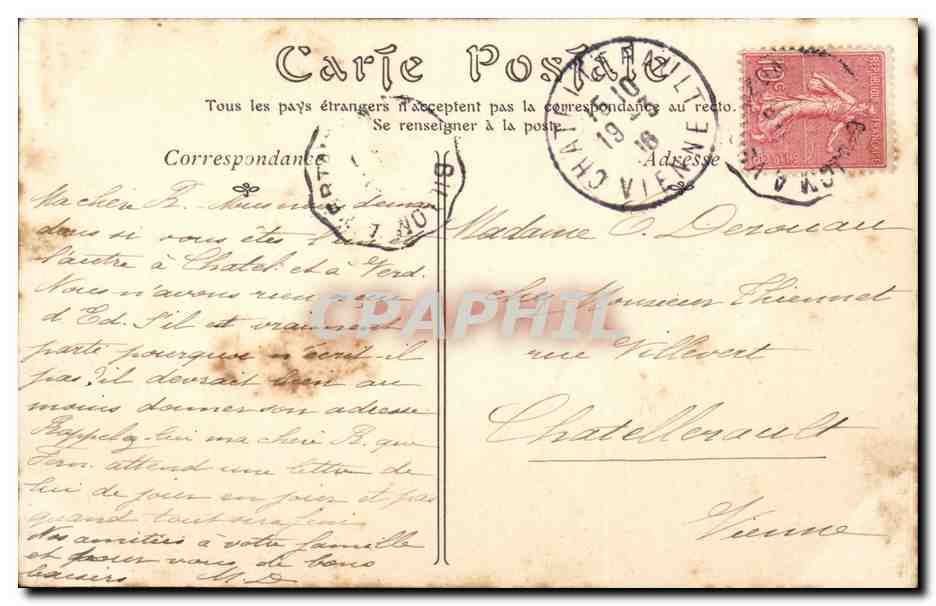 Carte Postale
Tous les pays étrangers n'acceptent pas la correspondance au recto.
Se renseigner à la poste.
Correspondance
Adresse
CHATELLERAULT
15 10
19 - 3
16
VIENNE
REPUBLIQUE FRANÇAISE
10 c
Ma chère R.
dans si vous êtes
l'autre à Chatel. et à Verd.
Nous n'avons rien
d'Ed. S'il est vraiment
parti pourquoi n'écrit-il
pas, il devrait bien au
moins donner son adresse
Rappelez-lui ma chère R. que
Fern. attend une lettre de
lui de jour en jour et pas
quand tout sera fini
Nos amitiés à votre famille
et pour vous de bons
baisers M. D
Madame C. Derouau
chez Monsieur Thiennet
rue Villevert
Chatellerault
Vienne
CPAPHIL